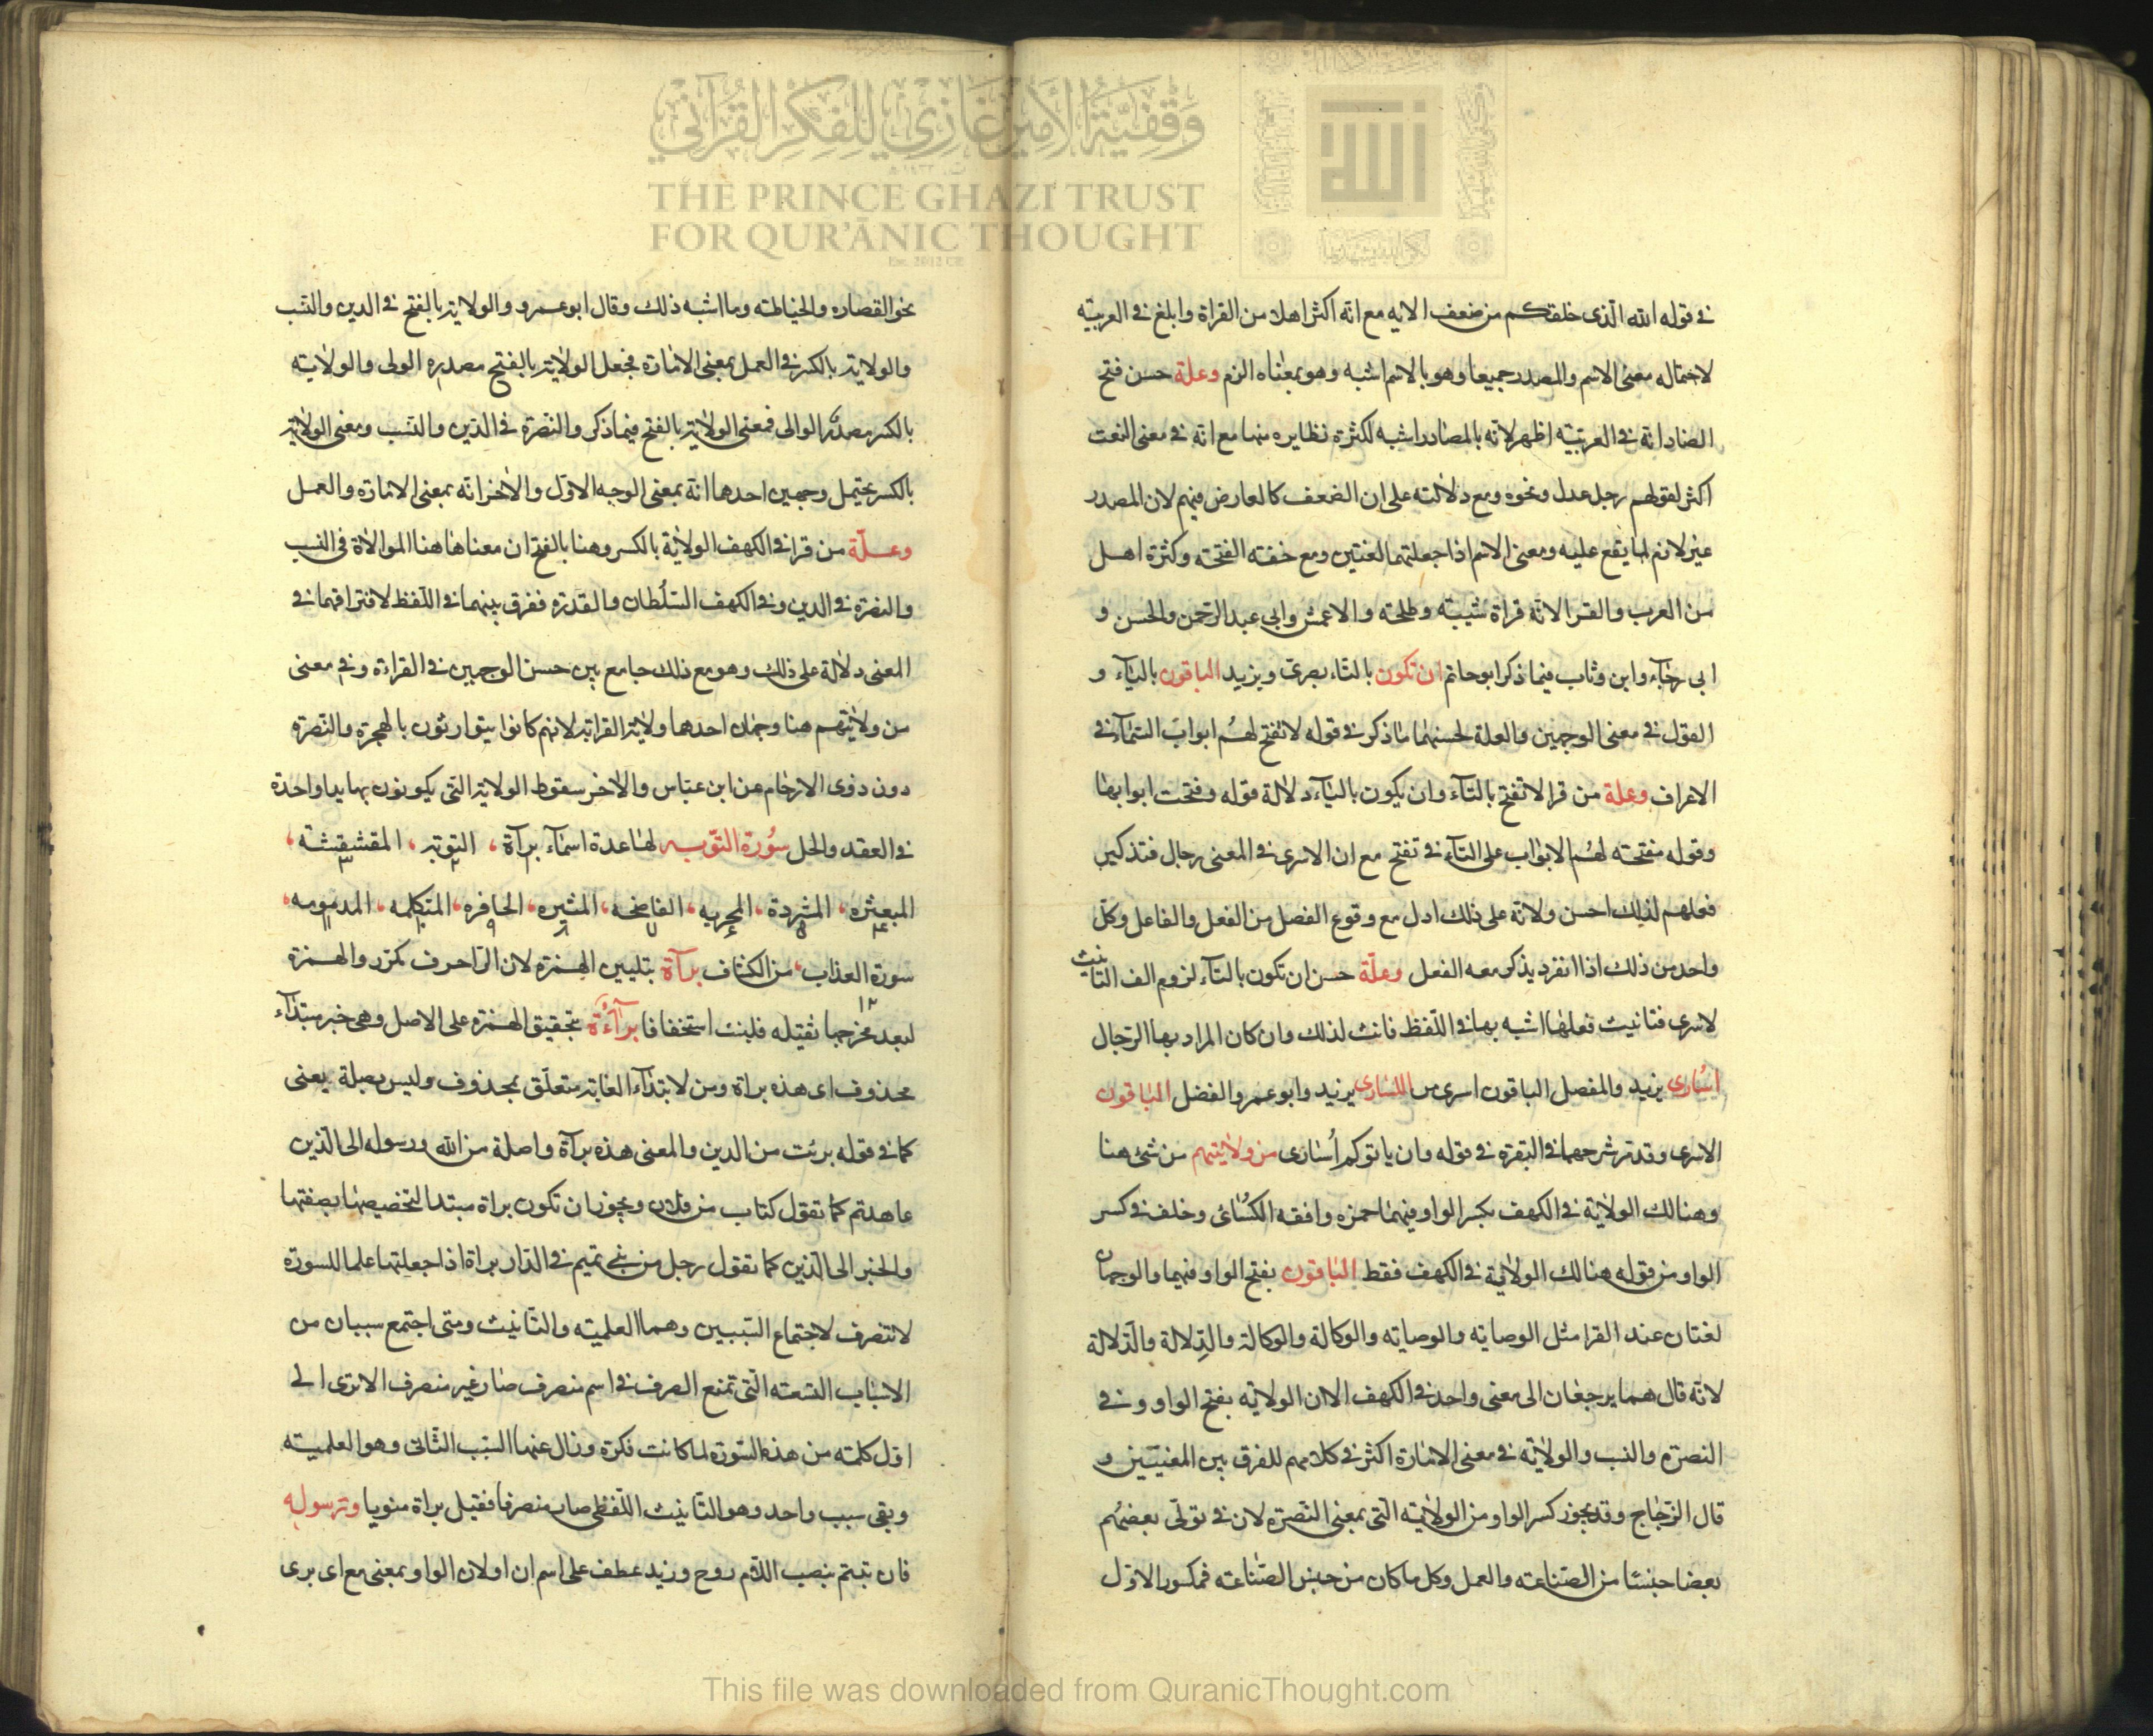 وقفية الأمير غازي للفكر القرآني
THE PRINCE GHAZI TRUST
FOR QUR'ĀNIC THOUGHT
في قوله الله الذى خلقكم من ضعف الايه مع انه اكثر اهلا من القراة وابلغ في العربيّه
لاحتماله معنى الاسم والمصدر جميعا وهو بالاسم اشبه وهو بمعناه الزم وعلة حسن فتح
الضاد انه في العربيّه اظهر لانه بالمصادر اشبه لكثرة نظايره منها مع انه في معنى النعت
اكثر لقولهم رجل عدل ونحوه ومع دلالته على ان الضعف كالعارض فيهم لان المصدر
غير لازم لما يقع عليه ومعنى الاسم اذا جعلتهما لغتين ومع خفته الفتحه وكثرة اهل
من العرب والقرا لانه قراة شيبته وطلحته والاعمش وابى عبد الرّحمن والحسن و
ابى رجآء وابن وثاب فيما ذكر ابو حاتم ان تكون بالتاء بصرىّ ويزيد الباقون باليآء و
القول في معنى الوجهين والعلة لحسنهما ما ذكر في قوله لا تفتح لهُم ابواب السّمآء في
الاعراف وعلة من قرا لا تفتح بالتآء وان يكون باليآء دلالة قوله وفتحت ابوابها
وقوله مفتحته لهُم الابواب على التآء في تفتح مع ان الاسرى في المعنى رجال فتذكير
فعلهم لذلك احسن ولانه على ذلك ادل مع وقوع الفصل من الفعل والفاعل وكلّ
واحد من ذلك اذا انفرد يذكر معه الفعل وعلّة حسن ان تكون بالتآء لزوم الف التانيث
لاسرى فتانيث فعلها اشبه بها في اللّفظ فانث لذلك وان كان المراد بها الرّجال
اسُارى يزيد والمفصل الباقون اسرى من اللسّارى يزيد وابو عمر والفضل الباقون
الاسرى وقد مّر شرحهما في البقرة في قوله وان ياتوكم اُسارى من ولايتهم من شئ هنا
وهنالك الولاية في الكهف بكسر الواو فيهما حمزه وافقه الكسُائى وخلف في كسر
الواو من قوله هنالك الولاية في الكهف فقط الباقون بفتح الواو فيهما والوجهان
لغتان عند القرا مثل الوصايه والوصايه والوكالة والوكالة والدِلالة والدَلالة
لانه قال هما يرجعان الى معنى واحد في الكهف الا ان الولايه بفتح الواو وفي
النصرة والنسب والولايه في معنى الامارة اكثر في كلامهم للفرق بين المعنيين و
قال الزّجاج وقد يجوز كسر الواو من الولايته التى بمعنى النّصرة لان في تولّى بعضهُم
بعضا جنسًا من الصّناعته والعمل وكل ما كان من جنس الصّناعته فمكسور الاوّل
نحو القصاره والخياطته وما اشبه ذلك وقال ابو عمرو والولاية بالفتح في الدين والنسب
والولاية بالكسر في العمل بمعنى الامارة فجعل الولاية بالفتح مصدره الولى والولايته
بالكسر مصدر الوالى فمعنى الولاية بالفتح فيما ذكر والنّصرة في الدّين والنسب ومعنى الولاية
بالكسر يحتمل وجهين احدهما انه بمعنى الوجه الاوّل والاخر انه بمعنى الامارة والعمل
وعلّة من قرا في الكهف الولاية بالكسر وهنا بالفتح ان معناها هنا الموالاة في النسب
والنصرة في الدين وفي الكهف السّلُطان والقدرة ففرق بينهما في اللّفظ لافتراقهما في
المعنى دلالة على ذلك وهو مع ذلك جامع بين حسن الوجهين في القراءة وفي معنى
من ولايتهم هنا وجهان احدهما ولاية القرابة لانهم كانوا يتوارثون بالهجرة والنّصرة
دون ذوى الارحام عن ابن عبّاس والاخر سقوط الولاية التى يكونون بها يدا واحدة
في العقد والحل سُورة التّوبه لها عدة اسمآء برآة، التوبة، المقشقشة،
المبعثره، المشردة، المخزيه، الفاضحه، المثيره، الحافره، المنكله، المدمومه،
سورة العذاب، من الكشاف برآة بتليين الهمزة لان الرّا حرف مكرّر والهمزة
لبعد مخرجها ثقيله فلينت استخفافا برآءُة بتحقيق الهمزة على الاصل وهى خبر مبتدآء
محذوف اى هذه براة ومن لابتدآء الغاية متعلّق بمحذوف وليس بصلة يعنى
كما في قوله برئت من الدين والمعنى هذه برآة واصلة من الله ورسوله الى الّذين
عاهدتم كما تقول كتاب من فلان ويجوز ان تكون براة مبتدا لتخصيصها بصفتها
والخبر الى الّذين كما تقول رجل من بنى تميم في الدّار براة اذا جعلتها علما للسورة
لا تنصرف لاجتماع السّببين وهما العلميته والتانيث ومتى اجتمع سببان من
الاسباب التسعته الّتى تمنع الصرف في اسم منصرف صار غير منصرف الا ترى الى
اوّل كلمته من هذه السّورة لما كانت نكرة وزال عنها السّبب الثّانى وهو العلميته
وبقى سبب واحد وهو التانيث اللّفظى صار منصرفا فقيل براة منويا ورسوله
فان تبتم بنصب اللّام روح وزيد عطف على اسم ان او لان الواو بمعنى مع اى برى
This file was downloaded from QuranicThought.com